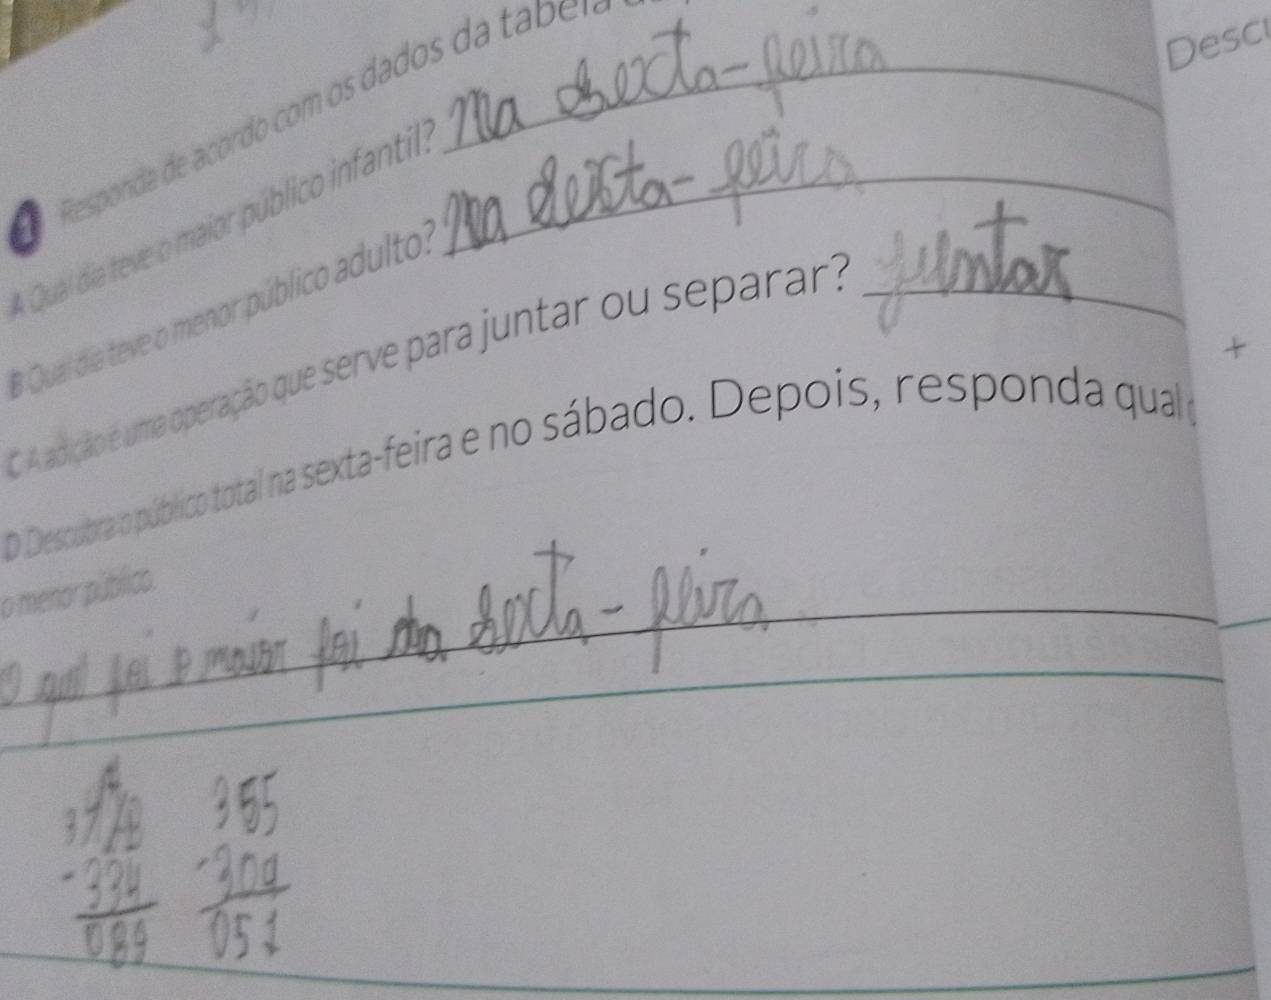 Descr
1 Responda de acordo com os dados da tabela
A Qual dia teve o maior público infantil? Na sexta-feira
B Qual dia teve o menor público adulto? Na sexta-feira
C A adição é uma operação que serve para juntar ou separar? juntar
+
D Descubra o público total na sexta-feira e no sábado. Depois, responda qual
o menor público.
O qual foi o maior foi na sexta-feira
355
- 334 - 304
089 051